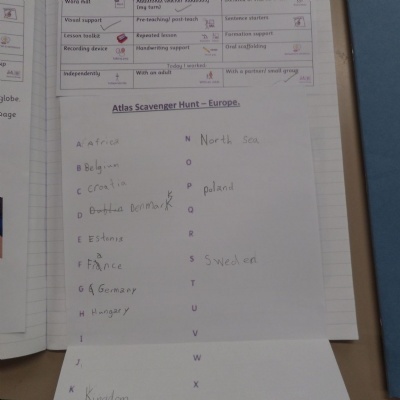 Word mat
(my turn)
Visual support
Pre-teaching/ post-teach
Sentence starters
Lesson toolkit
Repeated lesson
Formation support
Recording device
Handwriting support
Oral scaffolding
Today I worked
Independently
With an adult
With a partner/ small group
globe.
page
Atlas Scavenger Hunt – Europe.
A africa
B Belgium
C Croatia
D Denmark
E Estonia
F France
G Germany
H Hungary
I
J
K Kingdom
N North Sea
O
P poland
Q
R
S Sweden
T
U
V
W
X